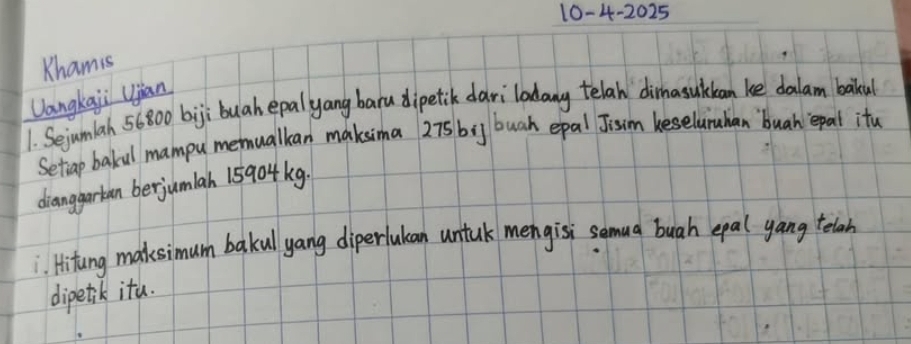 10-4-2025
Khamis
Uangkaji Ujian
1. Sejumlah 56800 biji buah epal yang baru dipetik dari ladang telah dimasukkan ke dalam bakul
Setiap bakul mampu memualkan maksima 275 bij buah epal Jisim keseluruhan buah epal itu
dianggarkan berjumlah 15904 kg.
i. Hitung maksimum bakul yang diperlukan untuk mengisi semua buah epal yang telah
dipetik itu.